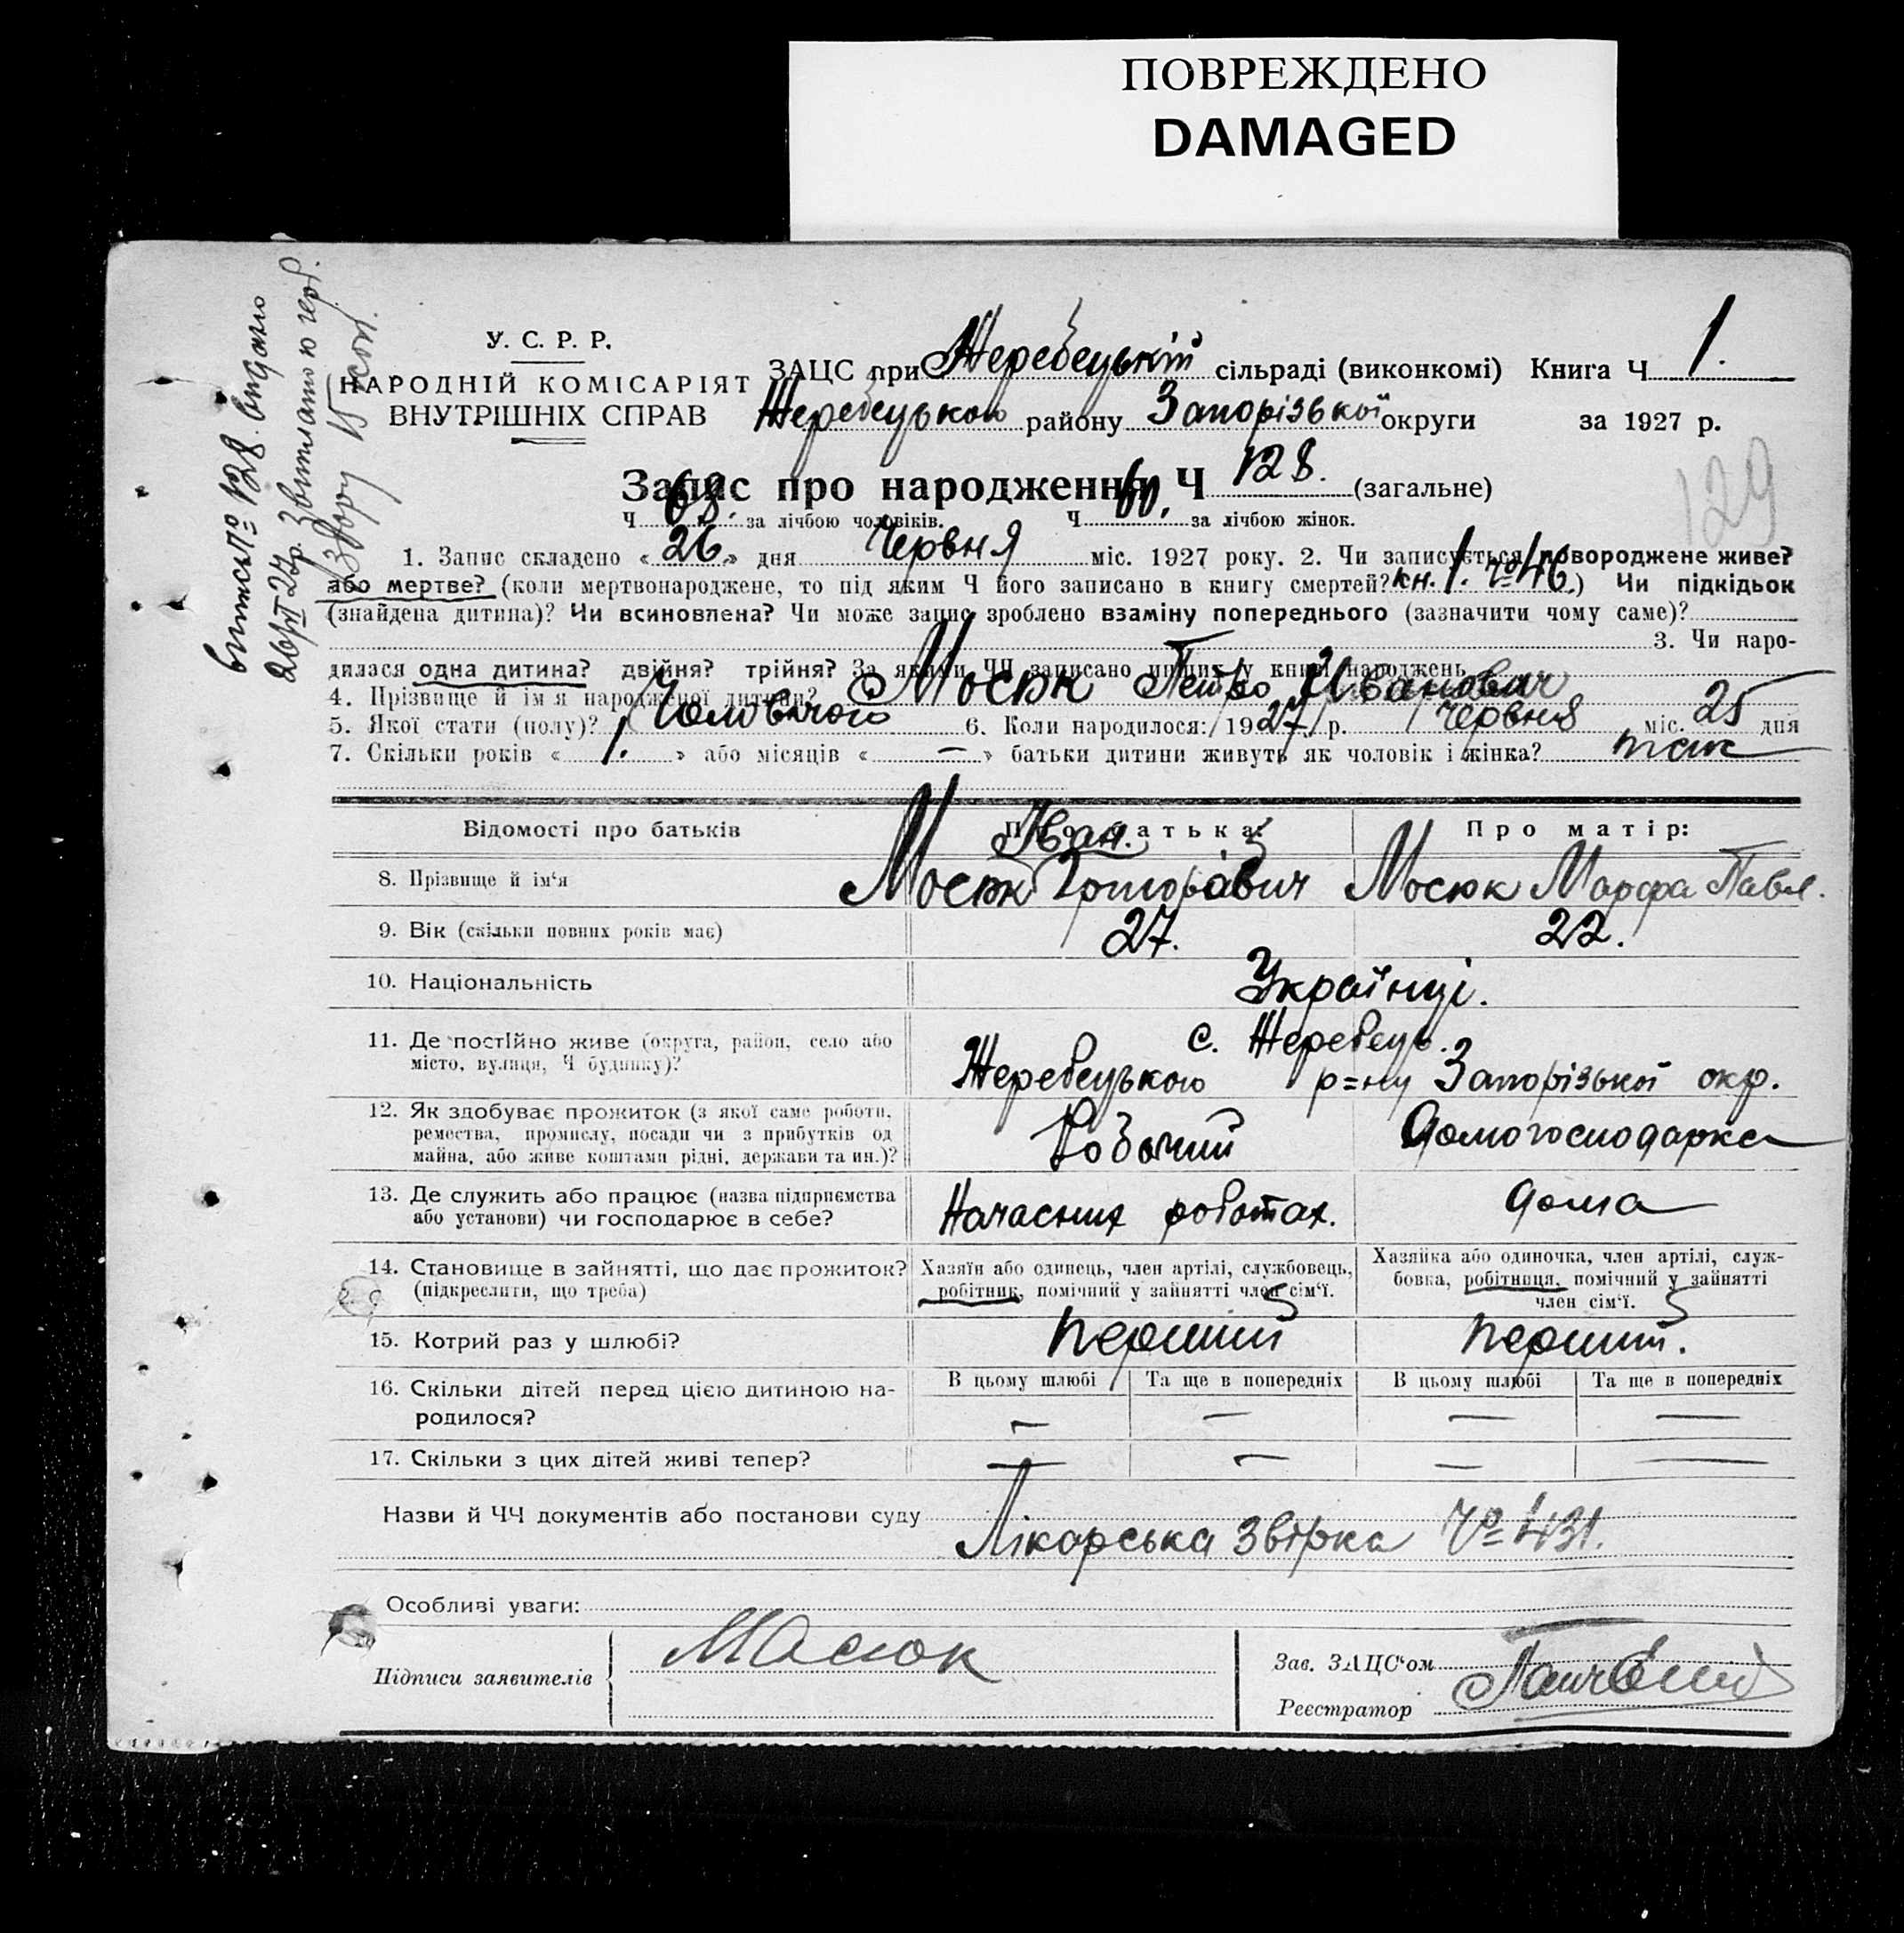 ПОВРЕЖДЕНО
DAMAGED
У. С. Р. Р.
НАРОДНІЙ КОМІСАРІЯТ
ВНУТРІШНІХ СПРАВ
ЗАЦС при Жеребецькій сільраді (виконкомі) Книга Ч 1.
Жеребецького району Запорізької округи за 1927 р.
129
Запис про народження Ч 128. (загальне)
Ч 68. за лічбою чоловіків. Ч 60. за лічбою жінок.
1. Запис складено « 26 » дня Червня міс. 1927 року. 2. Чи записується новороджене живе?
або мертве? (коли мертвонароджене, то під яким Ч його записано в книгу смертей? кн. 1. № 46.) Чи підкідьок
(знайдена дитина)? Чи всиновлена? Чи може запис зроблено взаміну попереднього (зазначити чому саме)?
3. Чи наро-
дилася одна дитина? двійня? трійня? За якими ЧЧ записано инших у книзі народжень
4. Прізвище й ім'я народженої дитини? Мосюк Петро Иванович
5. Якої стати (полу)? Чоловічого 6. Коли народилося: 1927 р. Червня міс. 25 дня
7. Скільки років « 1. » або місяців « — » батьки дитини живуть як чоловік і жінка? так
Відомості про батьків Про батька: Про матір:
Иван.
8. Прізвище й ім‘я Мосюк Григорович Мосюк Марфа Павл.
9. Вік (скільки повних років має) 27. 22.
10. Національність Українці.
11. Де постійно живе (округа, район, село або с. Жеребець.
місто, вулиця, Ч будинку)? Жеребецького р=ну Запорізької окр.
12. Як здобуває прожиток (з якої саме роботи,
ремества, промислу, посади чи з прибутків од Робочий Домогосподарка
майна, або живе коштами рідні, держави та ин.)?
13. Де служить або працює (назва підприємства
або установи) чи господарює в себе? Начасних роботах. дома
14. Становище в зайнятті, що дає прожиток? Хазяїн або одинець, член артілі, службовець, Хазяйка або одиночка, член артілі, служ-
(підкреслити, що треба) робітник, помічний у зайнятті член сім‘ї. бовка, робітниця, помічний у зайнятті
член сім‘ї.
15. Котрий раз у шлюбі? перший перший.
16. Скільки дітей перед цією дитиною на- В цьому шлюбі Та ще в попередніх В цьому шлюбі Та ще в попередніх
родилося? — — — —
17. Скільки з цих дітей живі тепер? — — — —
Назви й ЧЧ документів або постанови суду
Лікарська звірка № 431.
Особливі уваги:
Підписи заявителів Масюк Зав. ЗАЦС‘ом
Реєстратор
Випись № 128 видано